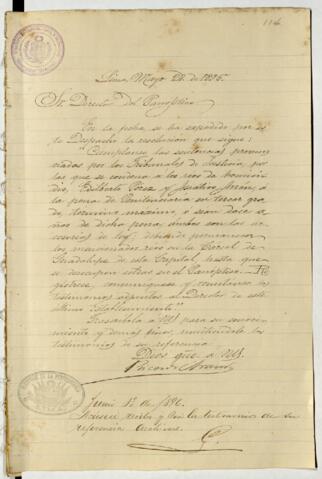 114
Lima, Mayo 21 de 1896.
Sr. Director del Panóptico
En la fecha, se ha expedido por es
te Despacho la resolución que sigue:
"Cúmplanse las sentencias pronun
ciadas por los Tribunales de Justicia, por
las que se condena a los reos de homici
dio, Gilberto Perez y
la pena de Penitenciaria en tercer gra
do, término máximo, o sean doce a
ños de dicha pena, ambos con las ac
cesorias de ley; debiendo permanecer
los mencionados reos en la Cárcel de
Guadalupe de esta Capital, hasta que
se desocupen celdas en el Panóptico. Re
gístrese, comuníquese y remítanse los
testimonios adjuntos al Director de este
último Establecimiento."
Trascríbolo a US. para su conoci
miento y demás fines, remitiéndole los
testimonios de su referencia.
Dios gue. a US.
Junio 12 de 1896.
referencia archívese.